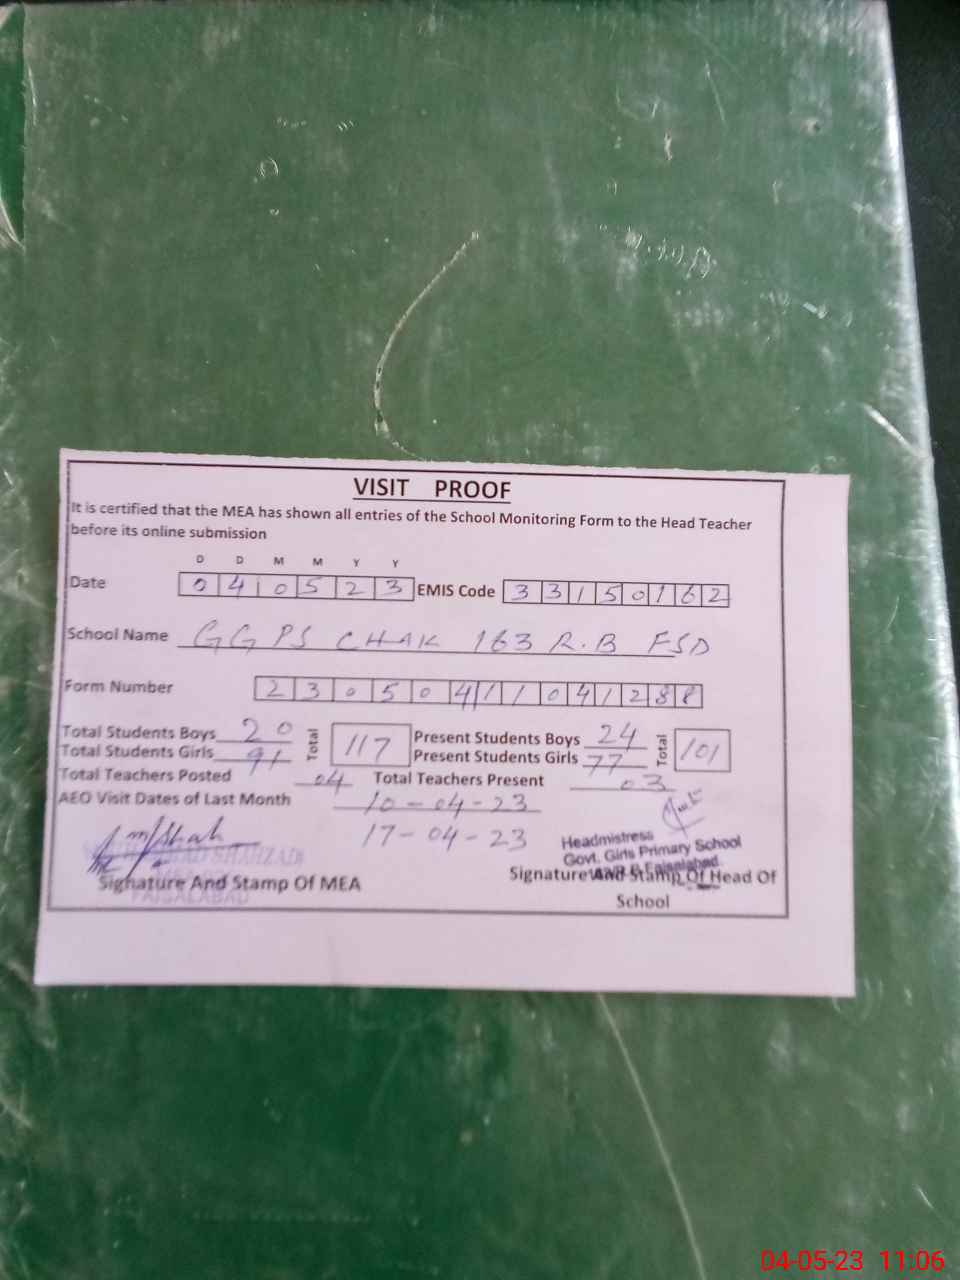 VISIT PROOF
It is certified that the MEA has shown all entries of the School Monitoring Form to the Head Teacher
before its online submission
D D M M Y Y
Date 0 4 0 5 2 3 EMIS Code 3 3 1 5 0 1 6 2
School Name GGPS CHAK 163 R.B FSD
Form Number 2 3 0 5 0 4 1 1 0 4 1 2 8 8
Total Students Boys 20 Total 117 Present Students Boys 24 Total 101
Total Students Girls 91 Present Students Girls 77
Total Teachers Posted 04 Total Teachers Present 03
AEO Visit Dates of Last Month 10-04-23
17-04-23
Headmistress
Govt. Girls Primary School
Faisalabad
SHAHZAD
Signature And Stamp Of MEA Signature And Stamp Of Head Of
FAISALABAD
School
04-05-23 11:06